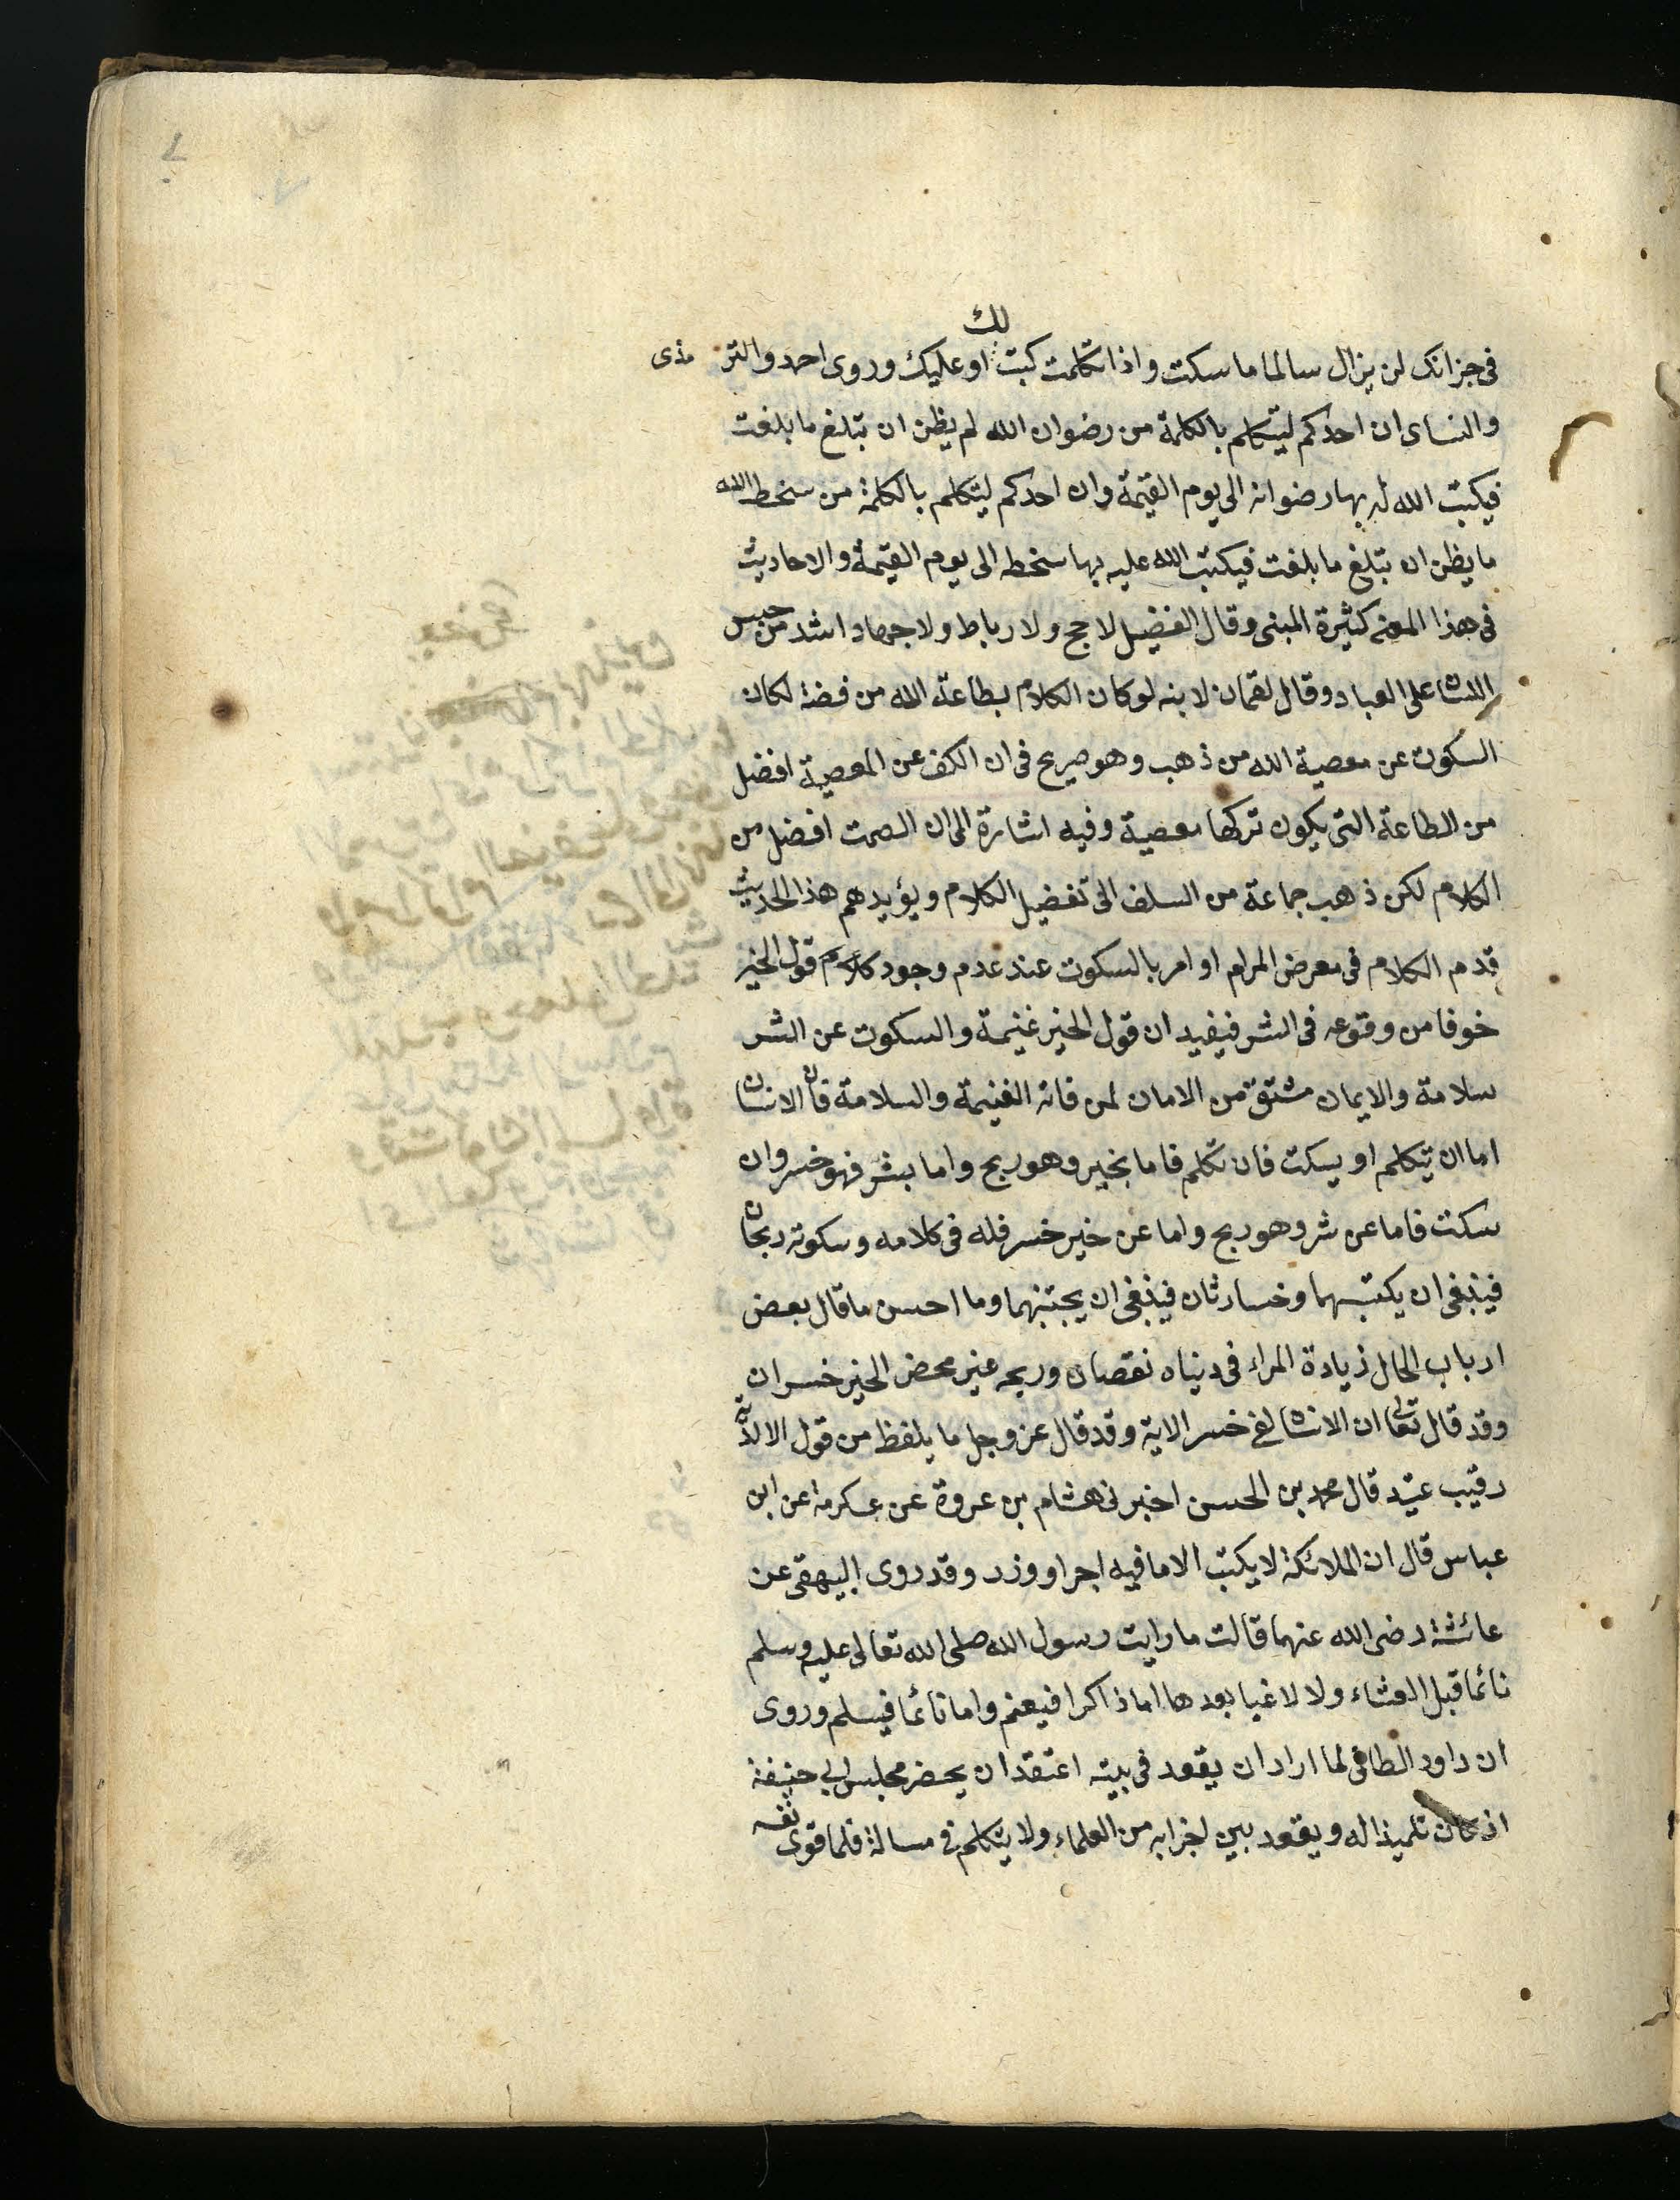 فى جزانك لن يزال سالما ما سكت واذا تكلمت كبت لك او عليك وروى احمد والتر مذى
والنساى ان احدكم ليتكلم بالكلمة من رضوان الله لم يظن ان تبلغ ما بلغت
فيكبت الله له بها رضوانه الى يوم القيمة وان احدكم ليتكلم بالكلمة من سخط الله
ما يظن ان تبلغ ما بلغت فيكتب الله عليه بها سخطه الى يوم القيمة والاحاديث
فى هذا المعنى كثيرة المبنى وقال الفضيل لا حج ولا رباط ولا جهاد اشد من حبس
اللسان على العباد وقال لقمان لابنه لو كان الكلام بطاعة الله من فضة لكان
السكوت عن معصية الله من ذهب وهو صريح فى ان الكف عن المعصية افضل
من الطاعة التى يكون تركها معصية وفيه اشارة الى ان الصمت افضل من
الكلام لكن ذهب جماعة من السلف الى تفضيل الكلام ويؤيدهم هذا الحديث
قدم الكلام فى معرض المرام او امر بالسكوت عند عدم وجود كلام قول الخير
خوفا من وقوعه فى الشر فيفيد ان قول الخير غنيمة والسكوت عن الشر
سلامة والايمان مشتق من الامان لمن فاته الغنيمة والسلامة فان الانسان
اما ان يتكلم او يسكت فان تكلم فاما بخير وهو ربح واما بشر فهو خسر وان
سكت فاما عن شر وهو ربح واما عن خير خسر فله فى كلامه وسكوته ربحان
فينبغى ان يكتسبهما وخسارتان فينبغى ان يجتنبهما وما احسن ما قال بعض
ارباب الحال زيادة المراء فى دنياه نقصان وربحه غير محض الخير خسران
وقد قال تعالى ان الانسان لفى خسر الاية وقد قال عز وجل ما يلفظ من قول الا لديه
رقيب عتيد قال محمد بن الحسن اخبرنى هشام بن عروة عن عكرمة عن ابن
عباس قال ان الملائكة لا يكتب الا ما فيه اجر او وزر وقد روى البيهقى عن
عائشة رضى الله عنهما قالت ما رايت رسول الله صلى الله تعالى عليه وسلم
نائما قبل العشاء ولا لاغيا بعدها اما ذاكرا فيغنم واما نائما فيسلم وروى
ان داود الطائى لما اراد ان يقعد فى بيته اعتقد ان يحضر مجلس ابى حنيفة
اذ كان تلميذا له ويقعد بين اخرابه من العلماء ولا يتكلم فى مسالة فلما قوى نفسه